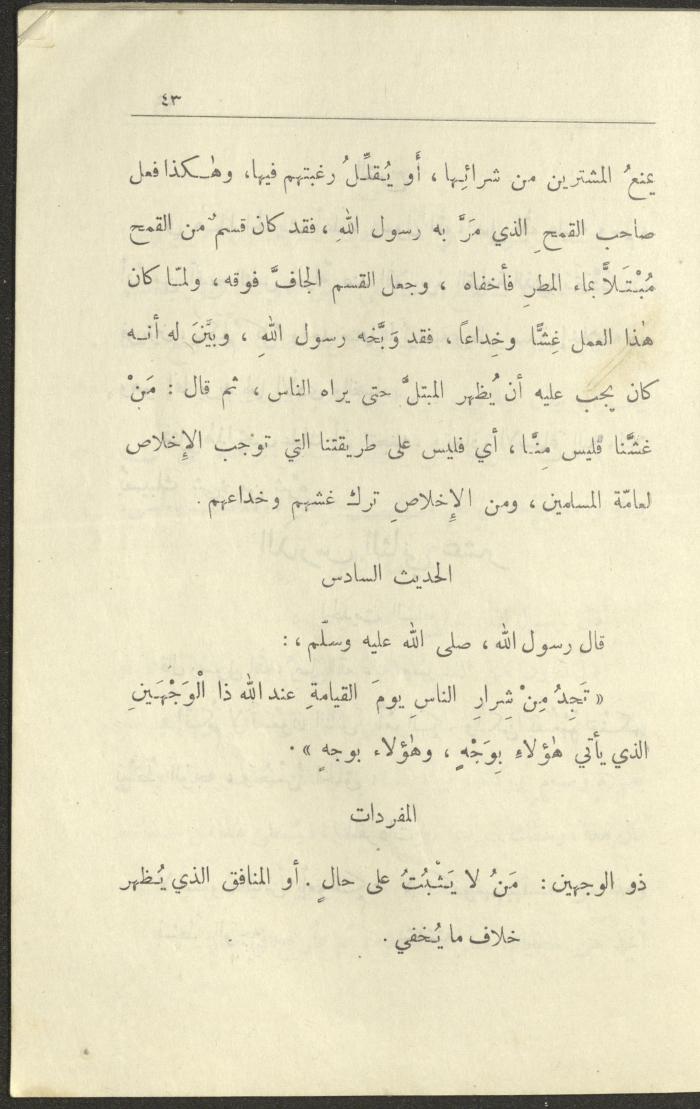 ٤٣
يمنعُ المشترين من شرائِها ، أَو يُقلِّلُ رغبتهم فيها، وهٰكذا فعل
صاحب القمحِ الذي مَرَّ به رسول اللهِ ، فقد كان قسمٌ من القمح
مُبْتَلاًّ بماء المطرِ فأخفاه ، وجعل القسم الجافَّ فوقه ، ولمّا كان
هٰذا العمل غِشًّا وخِداعاً ، فقد وَبَّخه رسول اللهِ ، وبيَّنَ له أنه
كان يجب عليه أن يُظهر المبتلَّ حتى يراه الناس ، ثم قال : مَنْ
غشَّنا فليس مِنَّا ، أي فليس على طريقتنا التي توجب الإِخلاص
لعامّة المسلمين ، ومن الإِخلاصِ ترك غشهم وخداعهم .
الحديث السادس
قال رسول الله ، صلى الله عليه وسلّم ، :
« تَجِدُ مِنْ شِرارِ الناسِ يومَ القيامةِ عند الله ذا الْوَجْهَينِ
الذي يأتي هٰؤلاءِ بِوَجْهٍ ، وهٰؤلاء بوجهٍ » .
المفردات
ذو الوجهين : مَنْ لا يَثْبُتُ على حالٍ . أو المنافق الذي يُظهر
خلاف ما يُخفي .